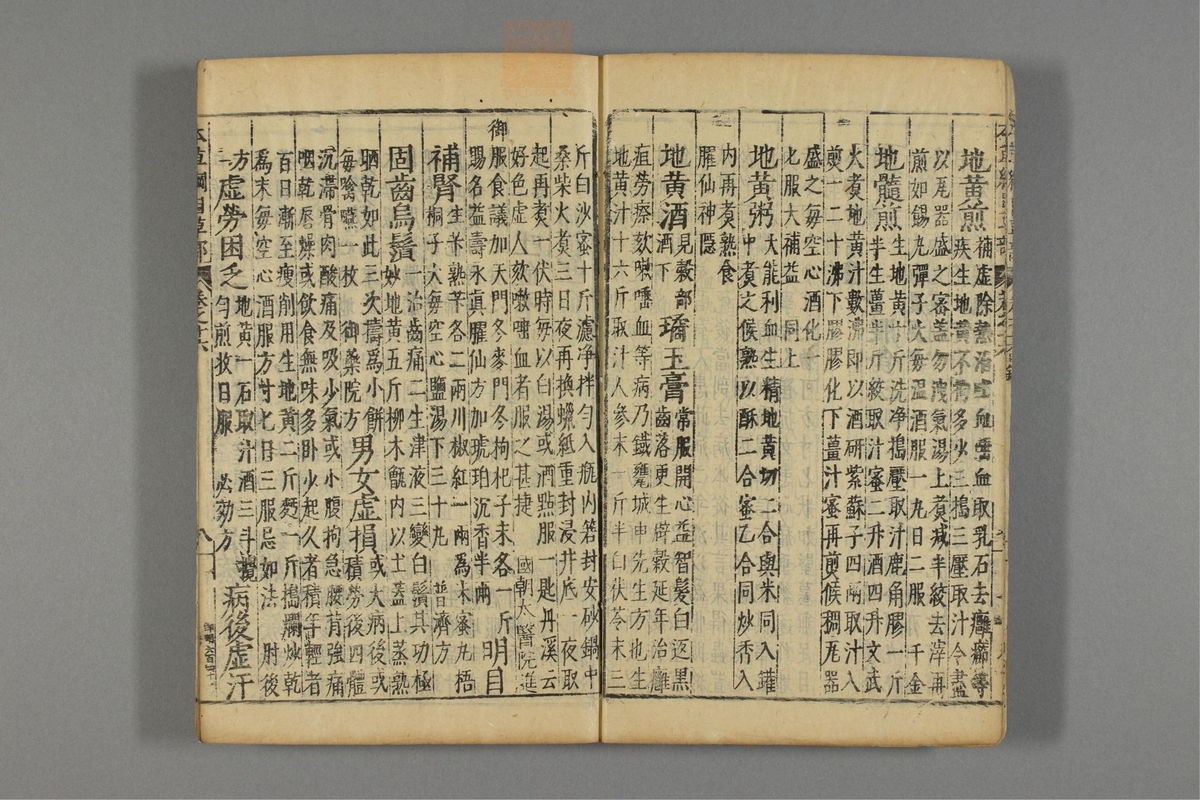 地黃煎補虛除熱治吐血唾血取乳石去癰癤等
疾生地黃不拘多少三搗三壓取汁令盡
以瓦器盛之密蓋勿洩氣湯上煮減半絞去滓再
煎如錫丸彈子大每溫酒服一丸日二服 千金
地髓煎生地黃十斤洗淨搗壓取汁鹿角膠一斤
半生薑半斤絞取汁蜜二升酒四升文武
火煮地黃汁數沸即以酒研紫蘇子四兩取汁入
煎一二十沸下膠膠化下薑汁蜜再煎候稠瓦器
盛之每空心酒化一
匕服大補益 同上
地黃粥大能利血生精地黃切二合與米同入罐
中煮之候熟以酥二合蜜乙合同炒香入
內再煮熟食
臞仙神隱
地黃酒見穀部
酒下 瓊玉膏常服開心益智髮白返黑
齒落更生辟穀延年治癰
疽勞瘵欬嗽唾血等病乃鐵甕城申先生方也生
地黃汁十六斤取汁人參末一斤半白伏苓末三
斤白沙蜜十斤濾淨拌勻入瓶內箬封安砂鍋中
桑柴火煮三日夜再換蠟紙重封浸井底一夜取
起再煮一伏時每以白湯或酒㸃服一匙丹溪云
好色虛人欬嗽唾血者服之甚捷 國朝太醫院進
御服食議加天門冬麥門冬枸杞子末各一斤
賜名益壽永真臞仙方加琥珀沉香半兩 明目
補腎生苄熟苄各二兩川椒紅一兩為末蜜丸梧
桐子大每空心鹽湯下三十丸 普濟方
固齒烏鬚一治齒痛二生津液三變白鬚其功極
妙地黃五斤柳木甑內以土蓋上蒸熟
晒乾如此三次擣為小餅
每噙嚥一枚 御藥院方 男女虛損或大病後或
積勞後四體
沉滯骨肉酸痛及吸吸少氣或小腹拘急腰背強痛
咽乾唇燥或飲食無味多卧少起久者積年輕者
百日漸至瘦削用生地黃二斤麫一斤搗爛炒乾
為末每空心酒服方寸匕日三服忌如法 肘後
方 虛勞困乏地黃一石取汁酒三斗攪
勻煎收日服 必効方 病後虛汗
本草綱目草部 卷之十六